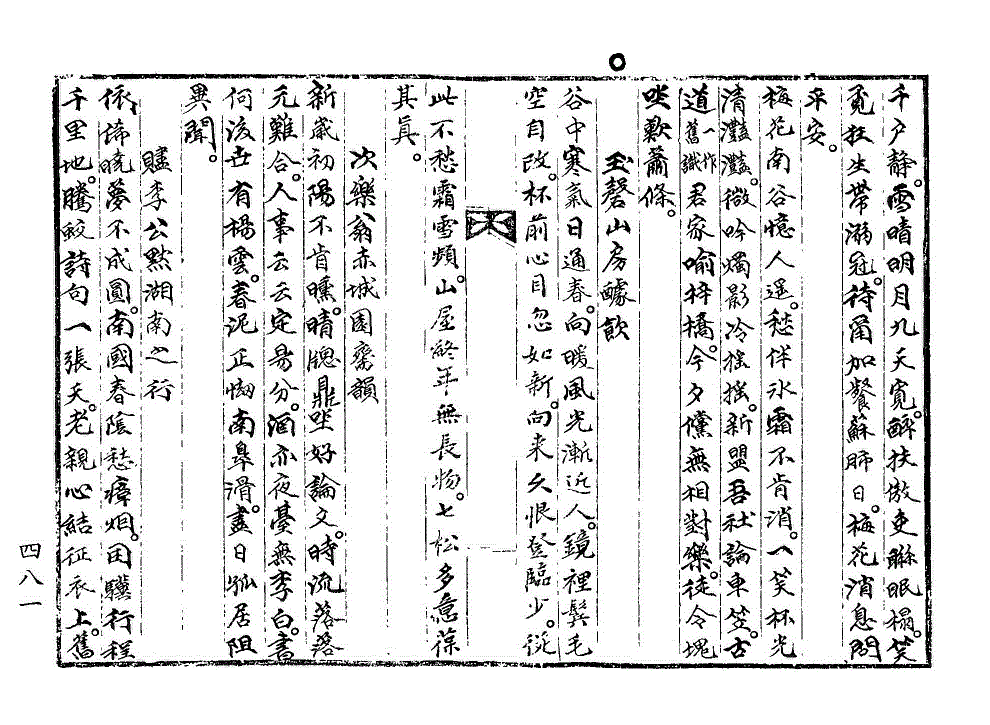 千户静雪晴明月九天寬醉扶傲吏聯眠榻笑
覓狂生帶溺冠待爾加餐蘇肺日梅花消息問
平安
梅花南谷憶人遥愁伴氷霜不肯消一笑杯光
清灩灩微吟燭影冷揺揺新盟吾社論車笠古
道一作舊識君家喻梓橋今夕儻無相對樂徒令塊
坐歎蕭條
玉磬山房醵飮
谷中寒氣日通春向暖風光漸近人鏡裡鬓毛
空自改杯前心目忽如新向来久恨登臨少從
此不愁霜雪頻山屋終年無長物七松多意葆
其眞
次樂翁赤城園齋韻
新歲初陽不肯曛晴牕鼎坐好論文時流落落
元難合人事云云定易分酒亦夜臺無李白書
何後世有楊雲春泥正怕南臯滑盡日孤居阻
異聞
贐李公㸃湖南之行
依㣲曉夢不成圓南國春陰愁瘴烟匹驥行程
千里地騰鮫詩句一張天老親心結征衣上舊
四八一